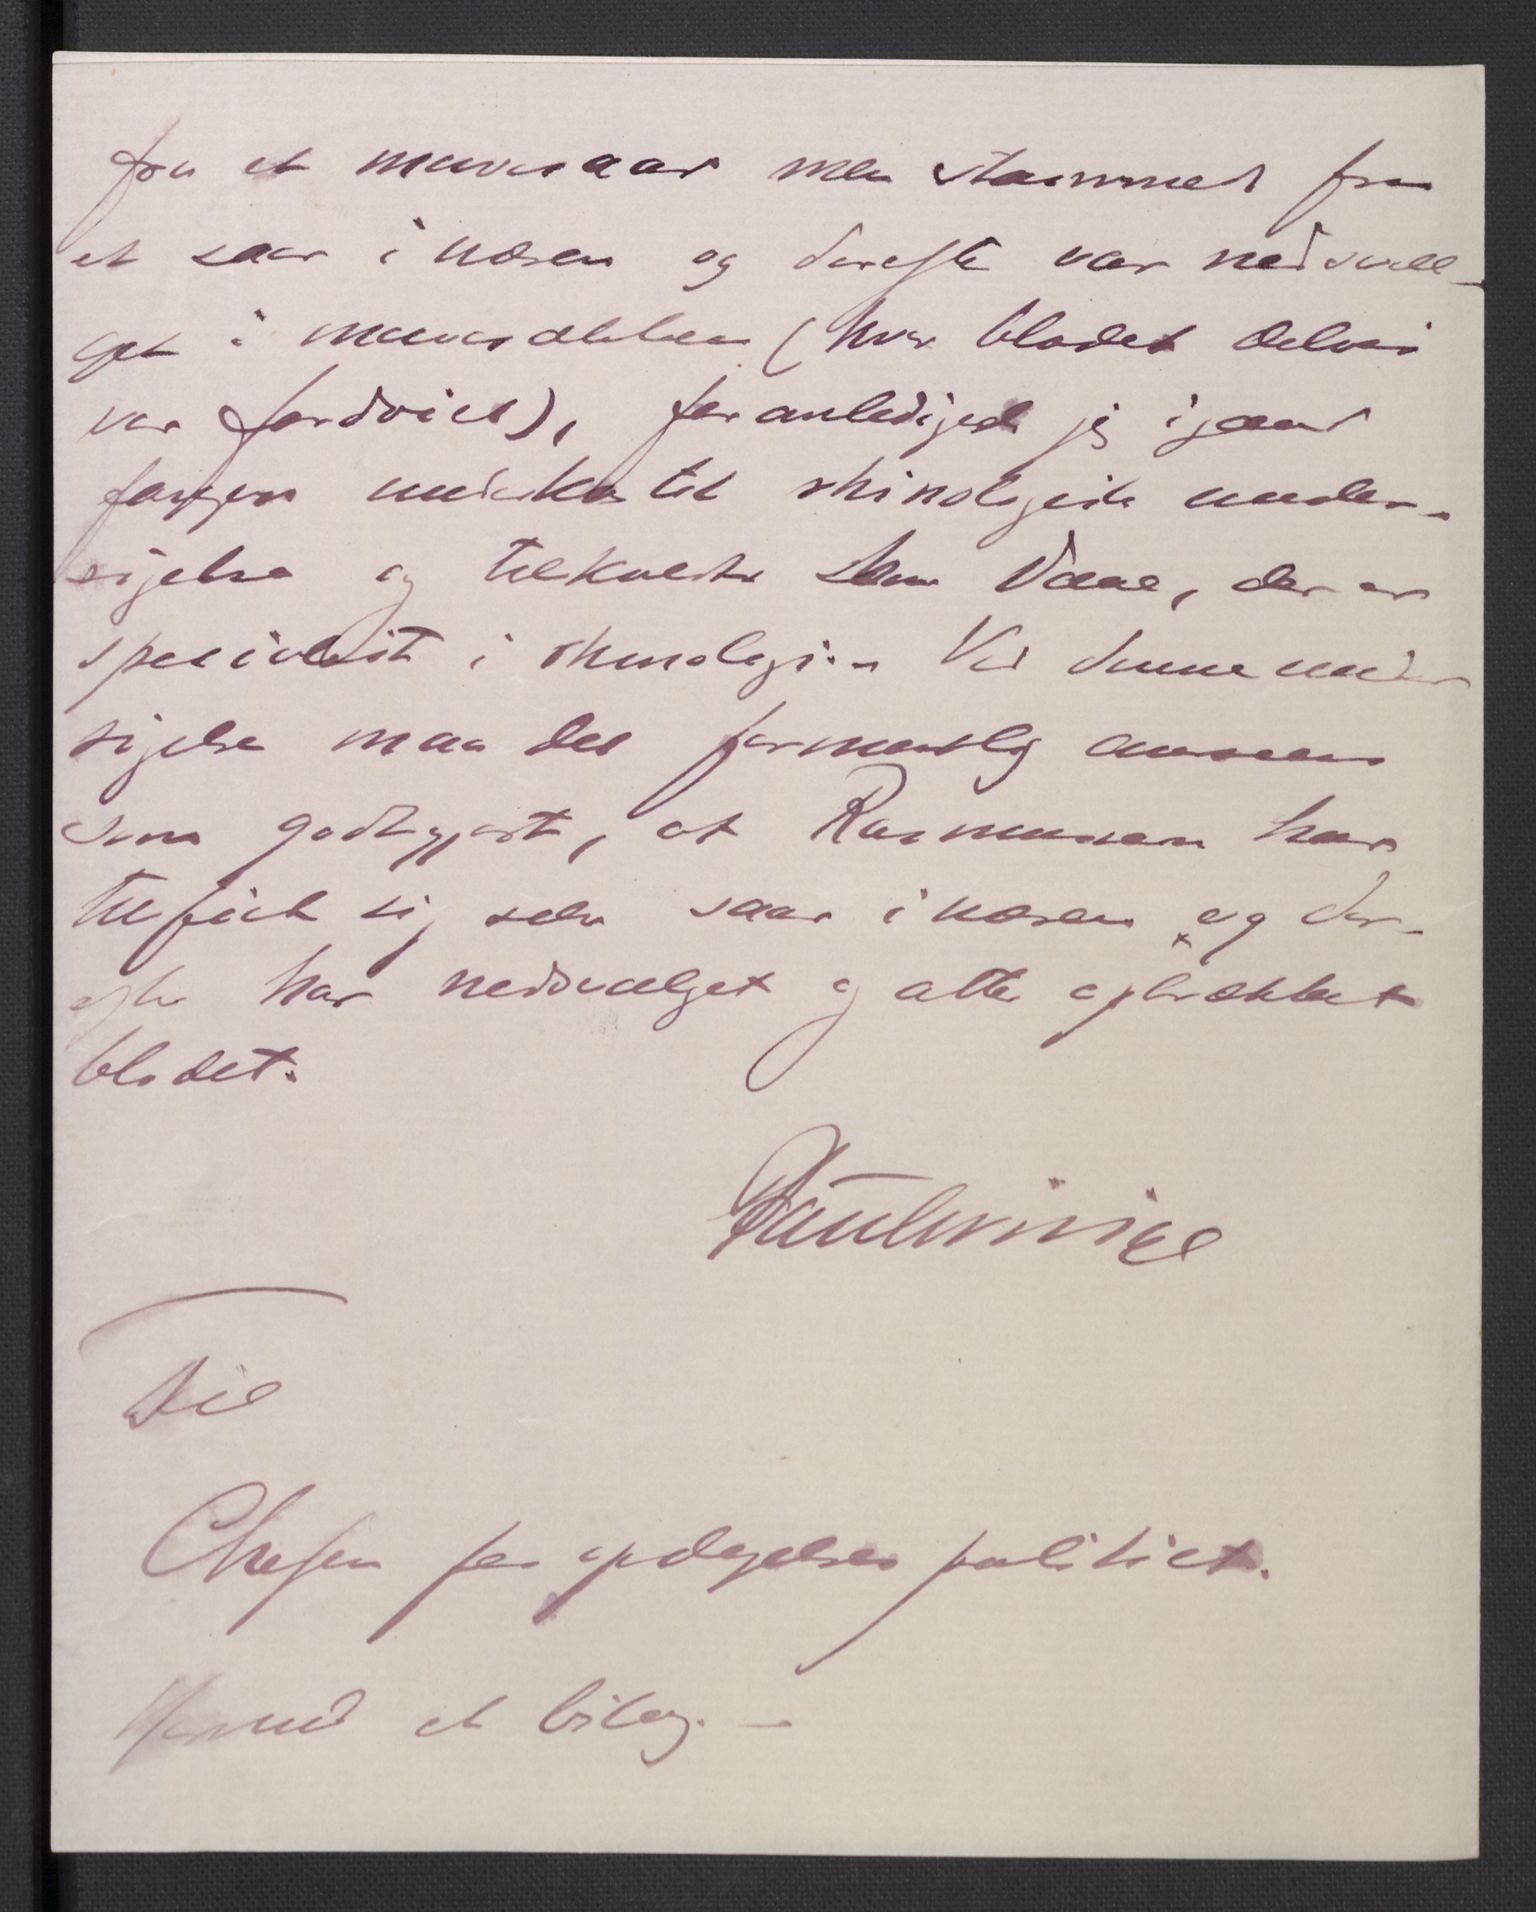 fra et mavesaar men stammet fra
et saar i næsen og derefter var nedsvæl-
get i mavesækken (hvor blodet delvis
var fordøiet), foranledigede jeg igaar
fangen underkastet rhinologisk under-
søgelse og tilkaldte, der er
specialist i rhinologi. – Ved denne under
søgelse maa det formentlig ansees
som godtgjort, at Rasmussen har
tilføiet sig selv saar i næsen og der-
efter har nedsvælget og atter opbrækket
blodet.
Til
Chefen for opdagelsespolitiet.
Hermed et bilag. –